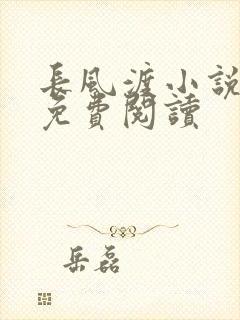 長風渡小說
免費閱讀
岳磊